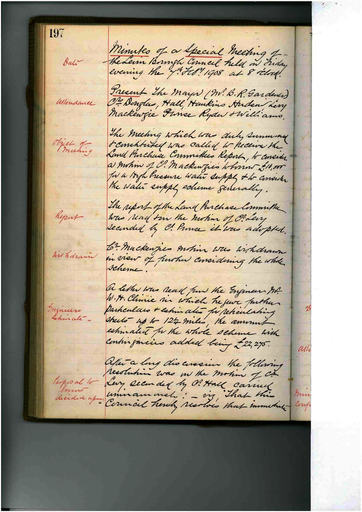 197
Minutes of a Special Meeting of
the Borough Council held on Friday
evening the 7th Feby. 1908 at 8 o'clock
Date
Present The Mayor (Mr
Attendance
Crs Douglas, Hall, Hawkins Levy
Mackenzie Ryder & Williams.
The Meeting which was duly summoned
Object of
Meeting
& constituted was called to receive the
Land Purchase Committees Report, to consider
a motion of Cr. Mackenzie's to borrow
for a High Pressure water supply & to consider
the water supply scheme generally.
The report of the Land Purchase Committee
Report
was read & on the motion of Cr Levy
seconded by Cr. it was adopted.
Cr. Mackenzies motion was withdrawn
Withdrawn
in view of further considering the whole
scheme.
A letter was read from the Engineer Mr
W. H. in which he gave further
Engineers
Estimate
particulars & estimates for reticulating
streets up to 12¼ miles, the amount
estimated for the whole scheme with
contingencies added being £22,275.
After a long discussion the following
resolution was on the motion of Cr
Proposal to
decided upon
Levy seconded by Cr. Hall carried
unanimously: - viz "That this
Council hereby resolves that immediate